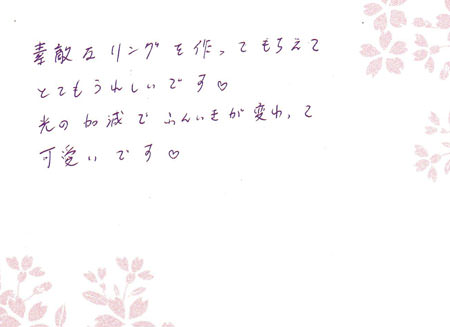 素敵なリングを作ってもらえて
とてもうれしいです♡
光の加減でふんいきが変わって
可愛いです♡